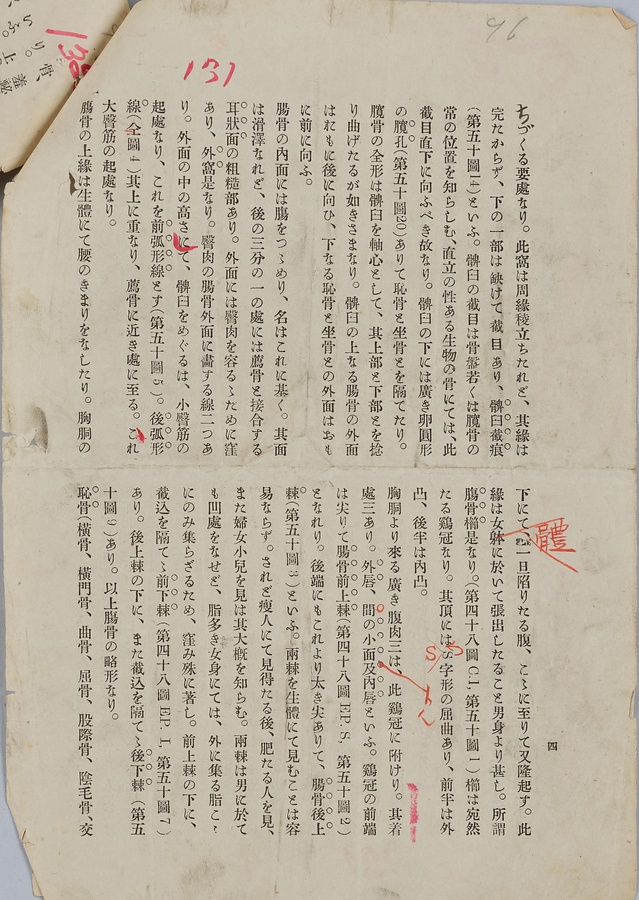 96
131
ちづくる要處なり。此窩は周緣稜立ちたれど、其緣は
完たからず、下の一部は缺けて截目あり、髀臼截痕
(第五十圖14)といふ。髀臼の截目は骨盤若くは臗骨の
常の位置を知らしむ、直立の性ある生物の骨にては、此
截目直下に向ふべき故なり。髀臼の下には廣き卵圓形
の臗孔(第五十圖20)ありて恥骨と坐骨とを隔てたり。
臗骨の全形は髀臼を軸心として、其上部と下部とを捻
り曲げたるが如きさまなり。髀臼の上なる腸骨の外面
はおもに後に向ひ、下なる恥骨と坐骨との外面はおも
に前に向ふ。
腸骨の內面には腸をつゝめり、名はこれに基く。其面
は滑澤なれど、後の三分の一の處には薦骨と接合する
耳狀面の粗糙部あり。外面には臀肉を容るゝために窪
あり、外窩是なり。臀肉の腸骨外面に畵する線二つあ
り。外面の中の高さにて、髀臼をめぐるは、小臀筋の
起處なり、これを前弧形線とす(第五十圖5)。後弧形
線(仝圖4)其上に重なり、薦骨に近き處に至る。これ
大臀筋の起處なり。
腸骨の上緣は生體にて腰のきまりをなしたり。胸胴の
下にて、一旦陷りたる腹、こゝに至りて又隆起す。此
緣は女躰に於いて張出したること男身より甚し。所謂
腸骨櫛是なり。(第四十八圖C.I.第五十圖1)櫛は宛然
たる鷄冠なり。其頂にはS字形の屈曲あり、前半は外
凸、後半は內凸。
胸胴より來る廣き腹肉三は、此鷄冠に附けり。其着
處三あり。外唇、間の小面及內唇といふ。鷄冠の前端
は尖りて腸骨前上棘(第四十八圖EP.S.第五十圖2)
となれり。後端にもこれより太き尖ありて、腸骨後上
棘(第五十圖3)といふ。兩棘を生體にて見むことは容
易ならず。されど瘦人にて見得たる後、肥たる人を見、
また婦女小兒を見は其大槪を知らむ。兩棘は男に於て
も凹處をなせど、脂多き女身にては、外に集る脂こゝ
にのみ集らざるため、窪み殊に著し。前上棘の下に、
截込を隔てゝ前下棘(第四十八圖EP.I.第五十圖7)
あり。後上棘の下に、また截込を隔てゝ後下棘(第五
十圖9)あり。以上腸骨の略形なり。
恥骨、橫骨、橫門骨、曲骨、屈骨、股際骨、陰毛骨、交
四
體
S